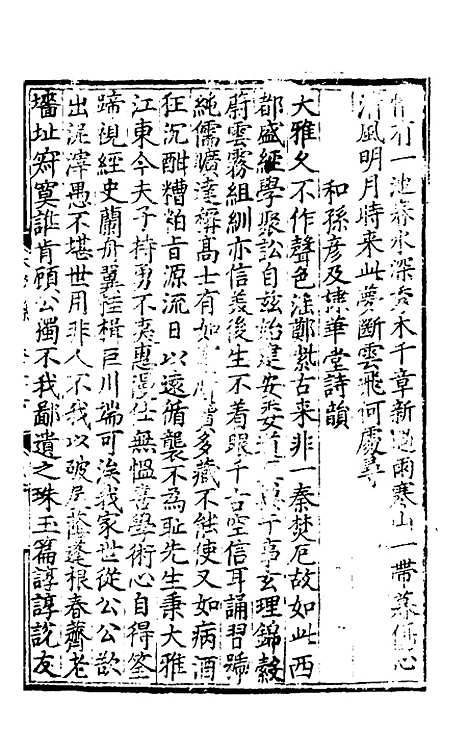 有一池春水深木千章新過雨寒山一帶暮心
清風明月時来此夢斷雲飛何處尋
和孫彦及棣華堂詩韻
大雅久不作聲色滛鄭紫古来非一秦焚厄故如此西
都盛經學聚訟自茲始建安委道事玄理錦縠
蔚雲霧組紃亦信美後生不着眼千古空信耳誦習歸
純儒曠達稱髙士有如多藏不能使又如病酒
狂沉酣糟粕旨源流日以遠循襲不為耻先生秉大雅
江東今夫子持勇不夷惠漫仕無慍喜學術心自得筌
蹄視經史蘭舟翼桂楫巨川端可涘我家世從公公歆
出泥滓愚不堪世用非人不我以破屋蔭蓬根春薺老
墻址寂寞誰肯顧公獨不我鄙遺之珠玉篇諄諄說友